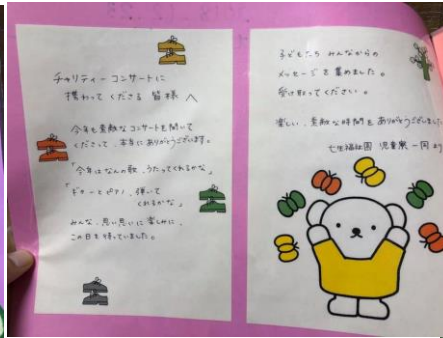 チャリティーコンサートに
携わってくださる 皆様へ
今年も素敵なコンサートを開いて
くださって、本当にありがとうございます。
「今年はなんの歌、うたってくれるかな」
「ギターとピアノ、弾いて
くれるかな」
みんな、思い思いに楽しみに、
この日を待っていました。
子どもたち みんなからの
メッセージを集めました。
受け取ってください。
楽しい、素敵な時間をありがとうございました
七生福祉園 児童寮一同より